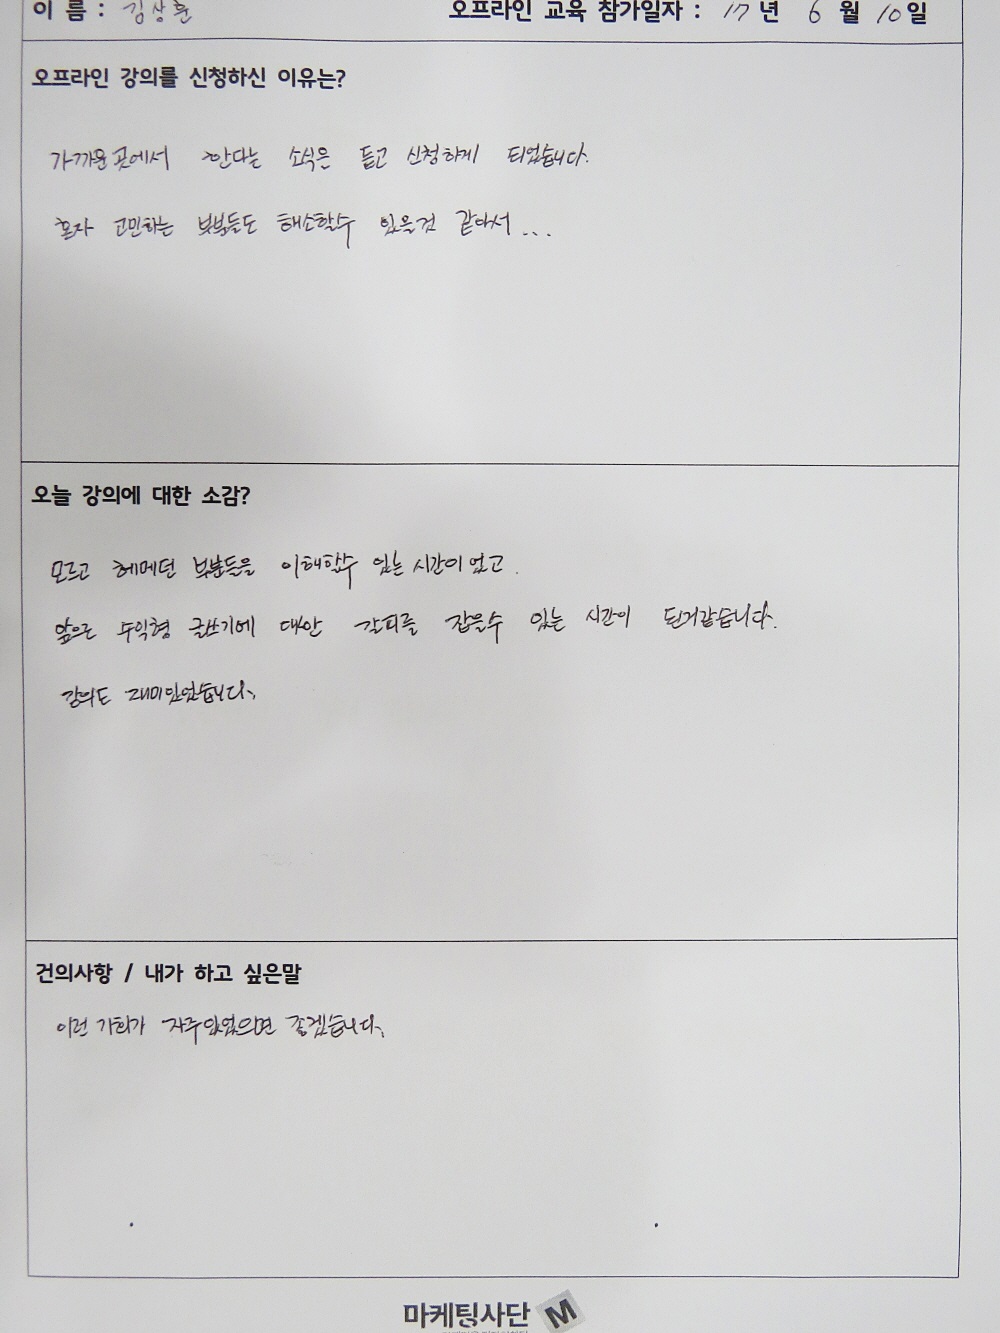 이 름 : 김상훈 오프라인 교육 참가일자 : 17 년 6 월 10 일
오프라인 강의를 신청하신 이유는?
가까운곳에서 한다는 소식은 듣고 신청하게 되었습니다.
혼자 고민하는 부분들도 해소할수 있을것 같아서...
오늘 강의에 대한 소감?
모르고 헤메던 부분들을 이해할수 있는 시간이었고.
앞으로 수익형 글쓰기에 대한 갈피를 잡을수 있는 시간이 된거같습니다.
강의도 재미있었습니다.
건의사항 / 내가 하고 싶은말
이런 기회가 자주있었으면 좋겠습니다.
마케팅사단 M